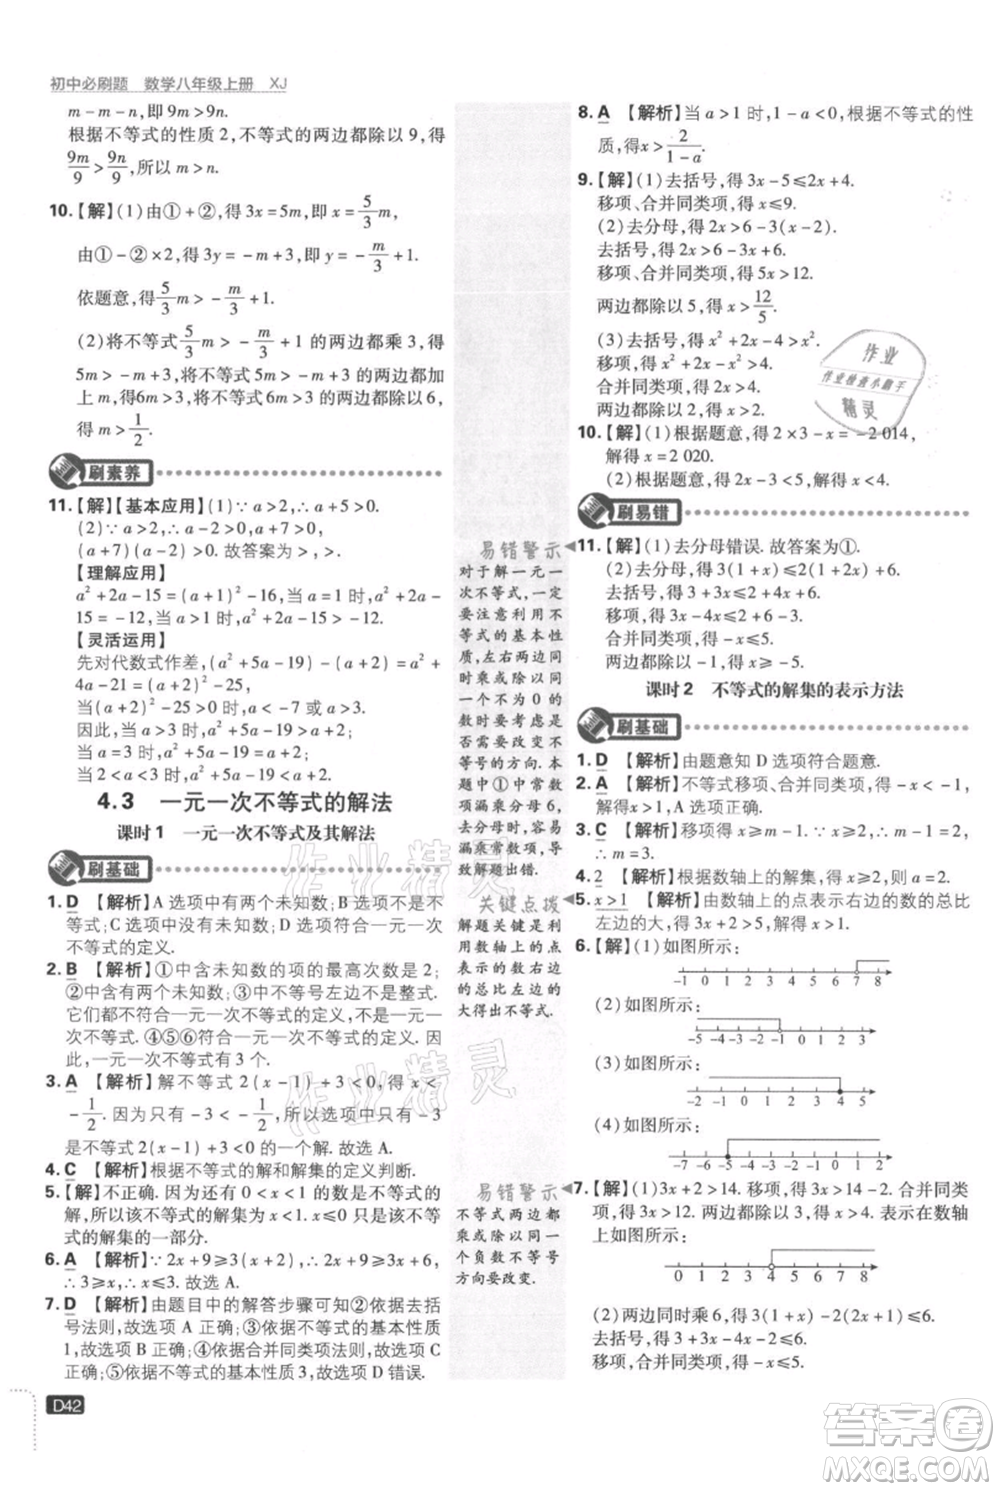 初中必刷题 数学八年级上册 XJ
m-m-n,即9m>9n.
根据不等式的性质2,不等式的两边都除以9,得
9m/9>9n/9,所以m>n.
10.【解】(1)由①+②,得3x=5m,即x=5/3m,
由①-②×2,得3y=-m+3,即y=-m/3+1.
依题意,得5/3m>-m/3+1.
(2)将不等式5/3m>-m/3+1的两边都乘3,得
5m>-m+3,将不等式5m>-m+3的两边都加
上m,得6m>3,将不等式6m>3的两边都除以6,
得m>1/2.
刷素养
11.【解】【基本应用】(1)∵a>2,∴a+5>0.
(2)∵a>2,∴a+7>9,a-2>0,∴
(a+7)(a-2)>0.故答案为>;>.
【理解应用】
a²+2a-15=(a+1)²-16,∵a>3,∴(a+
1)²>16,∴当a>3时,a²+2a-15>0.
【灵活运用】
先对代数式作差,(a²+5a-19)-(a²+4a-17)=
a²+5a-19-a²-4a+17=a-2,
当(a-2)>0,即a>2时,a²+5a-19>a²+4a-17;
当(a-2)<0,即a<2时,a²+5a-19<a²+4a-17.
4.3 一元一次不等式的解法
课时1 一元一次不等式及其解法
刷基础
1.D 【解析】A选项中有两个未知数;B选项是等
式;C选项中没有未知数;D选项符合一元一次
不等式的定义.
2.B 【解析】①中含未知数的项的最高次数是2;
②中含有两个未知数;③中不等号左边不是整式.
它们都不是一元一次不等式,不符合一元一次不等
式的定义. ④⑤⑥符合一元一次不等式的定义,
所以一元一次不等式有3个.
3.A 【解析】解不等式2(x-1)+3<0,得x<
-1/2. 因为只有-3<-1/2,所以选项中只有-3
是不等式2(x-1)+3<0的一个解.故选A.
4.C 【解析】根据不等式的解和解集的定义判断.
5.【解】不正确. 因为还有0<x<1的数是不等式的
解,所以所有大于1的数组成的集合只是这个不等
式的解集的一部分.
6.A 【解析】∵2x+9≥3(x+2),∴2x+9≥3x+6,
∴3≥x,∴x≤3,故选A.
7.D 【解析】由题目中的解答步骤可知②依据去括
号法则,故选项A正确;③依据不等式的基本性质
1,故选项B正确;④依据合并同类项法则,故选项C
正确;⑤依据不等式的基本性质3,故选项D错误.
D42
易错警示
对于解一元一
次不等式,一定
要注意利用不
等式的基本性
质,左右两边同
时乘或除以同
一个不为0的
数时要考虑是
否需要改变不
等号的方向.本
题中①中常数
项漏乘公分母6,
去分母时,容易
漏乘常数项,导
致解题出错.
关键点拨
解题关键是利
用数轴上的点
表示的数右边
的总比左边的
大得出不等式.
易错警示
不等式两边都
乘或除以同一
个负数不等号
方向要改变.
8.A 【解析】当a>1时,1-a<0,根据不等式的性
质,得x>2/(1-a).
9.【解】(1)去括号,得3x-5≤2x+4.
移项、合并同类项,得x≤9.
(2)去分母,得2x>6-3(x-2).
去括号,得2x>6-3x+6.
移项、合并同类项,得5x>12.
两边都除以5,得x>12/5.
(3)去括号,得x²+2x<x²+x+4.
移项,得x²-x²+2x-x<4.
合并同类项,得x<4.
10.【解】(1)根据题意,得2×3-x=-2 014,
解得x=2 020.
(2)根据题意,得2x-3<5,解得x<4.
刷易错
11.【解】(1)去分母错误. 故答案为①.
(2)去分母,得3(1+x)-2(2x+1)≤6.
去括号,得3+3x-4x-2≤6.
移项,得3x-4x≤6-3+2.
合并同类项,得-x≤5.
两边都除以-1,得x≥-5.
课时2 不等式的解集的表示方法
刷基础
1.D 【解析】由题意知D选项符合题意.
2.A 【解析】不等式移项、合并同类项,得2x>2,解
得x>1,A选项正确.
3.C 【解析】移项得x≥m-1,又∵x≥-2,
∴m-1=-2,∴m=-1.
4.2 【解析】根据数轴上的解集,得x≥2,所以a=2.
5.x>1 【解析】由数轴上的点表示右边的数的总比
左边的大,得x+3>2x+2>5,解得x>1.
6.【解】(1)如图所示:
-4 -3 -2 -1 0 1 2 3 4 5 6 7 8
(2)如图所示:
-5 -4 -3 -2 -1 0 1 2 3 4 5
(3)如图所示:
-4 -3 -2 -1 0 1 2 3 4 5
(4)如图所示:
-7 -6 -5 -4 -3 -2 -1 0 1 2
7.【解】(1)3x+2>14. 移项,得3x>14-2. 合并同类
项,得3x>12. 两边都除以3,得x>4. 表示在数轴
上如图所示:
0 1 2 3 4 5 6 7 8
(2)两边同时乘6,得3(1+x)-2(2x+1)≤6.
去括号,得3+3x-4x-2≤6.
移项、合并同类项,得-x≤5.
作业
作业检查小助手
精灵
作业精灵
作业精灵
答案卷
MXQE.COM